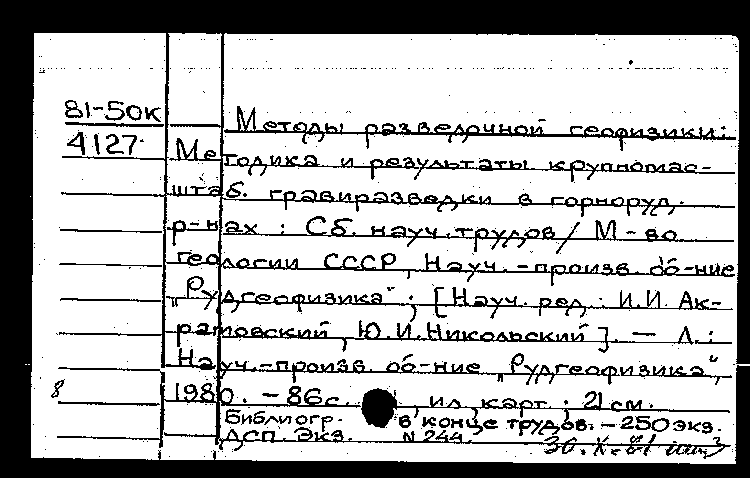 81-50к
4127
Методы разведочной геофизики:
Методика и результаты крупномас-
штаб. гравиразведки в горноруд.
р-нах : Сб. науч. трудов / М-во
геологии СССР, Науч.-произв. об-ние
"Рудгеофизика"; [Науч. ред.: И.И. Ак-
рамовский, Ю.И. Никольский]. — Л.:
Науч.-произв. об-ние "Рудгеофизика",
8
1980. - 86с. , ил, карт ; 21 см.
Библиогр. в конце трудов. - 250 экз.
ДСП. Экз. N 244.
30.X.81